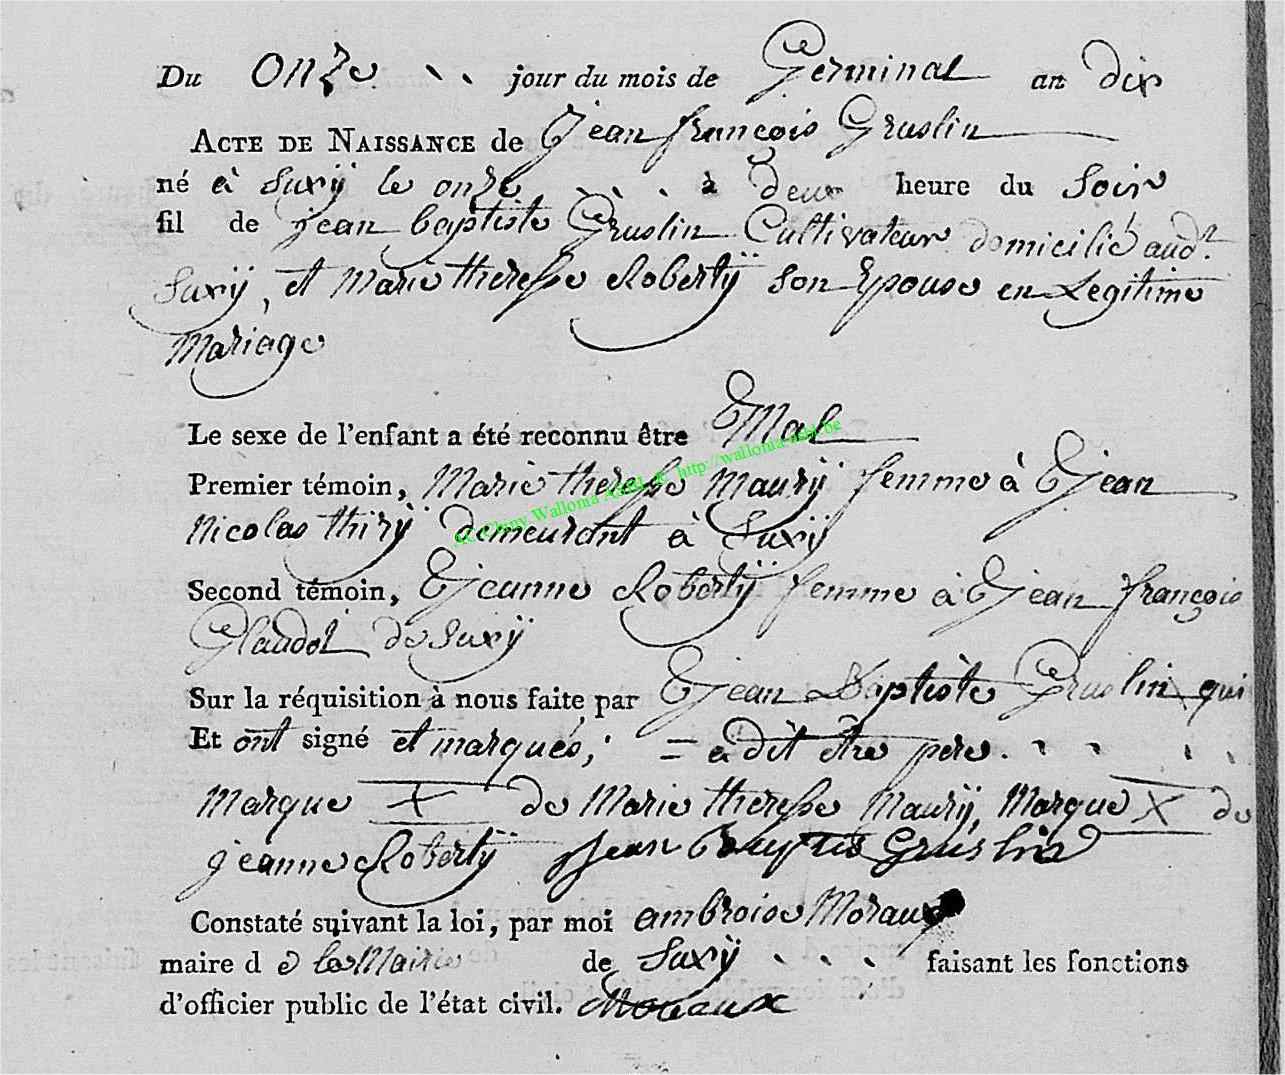 Du onze jour du mois de Germinal an dix
ACTE DE NAISSANCE de Jean françois Gruslin
né à Suxÿ le onze à deux heure du Soir
fil de jean baptiste Gruslin Cultivateur domicilié aud.t
Suxÿ, et Marie theresse Robertÿ son Epouse en Legitime
Mariage
Le sexe de l'enfant a été reconnu être Mal
Premier témoin, Marie theresse Maurÿ femme à Jean
Nicolas thirÿ demeurant à Suxÿ
Second témoin, Jeanne Robertÿ femme à Jean françois
Glaudot de Suxÿ
Sur la réquisition à nous faite par Jean Baptiste Gruslin qui
Et ont signé et marqués; = a dit être pere.
Marque X de Marie theresse Maurÿ, Marque X de
jeanne Robertÿ Jean baptiste Gruslin
Constaté suivant la loi, par moi ambroise Moraux
maire d e la Mairie de Suxÿ faisant les fonctions
d'officier public de l'état civil. Moraux
http://wallonia-asbl.be